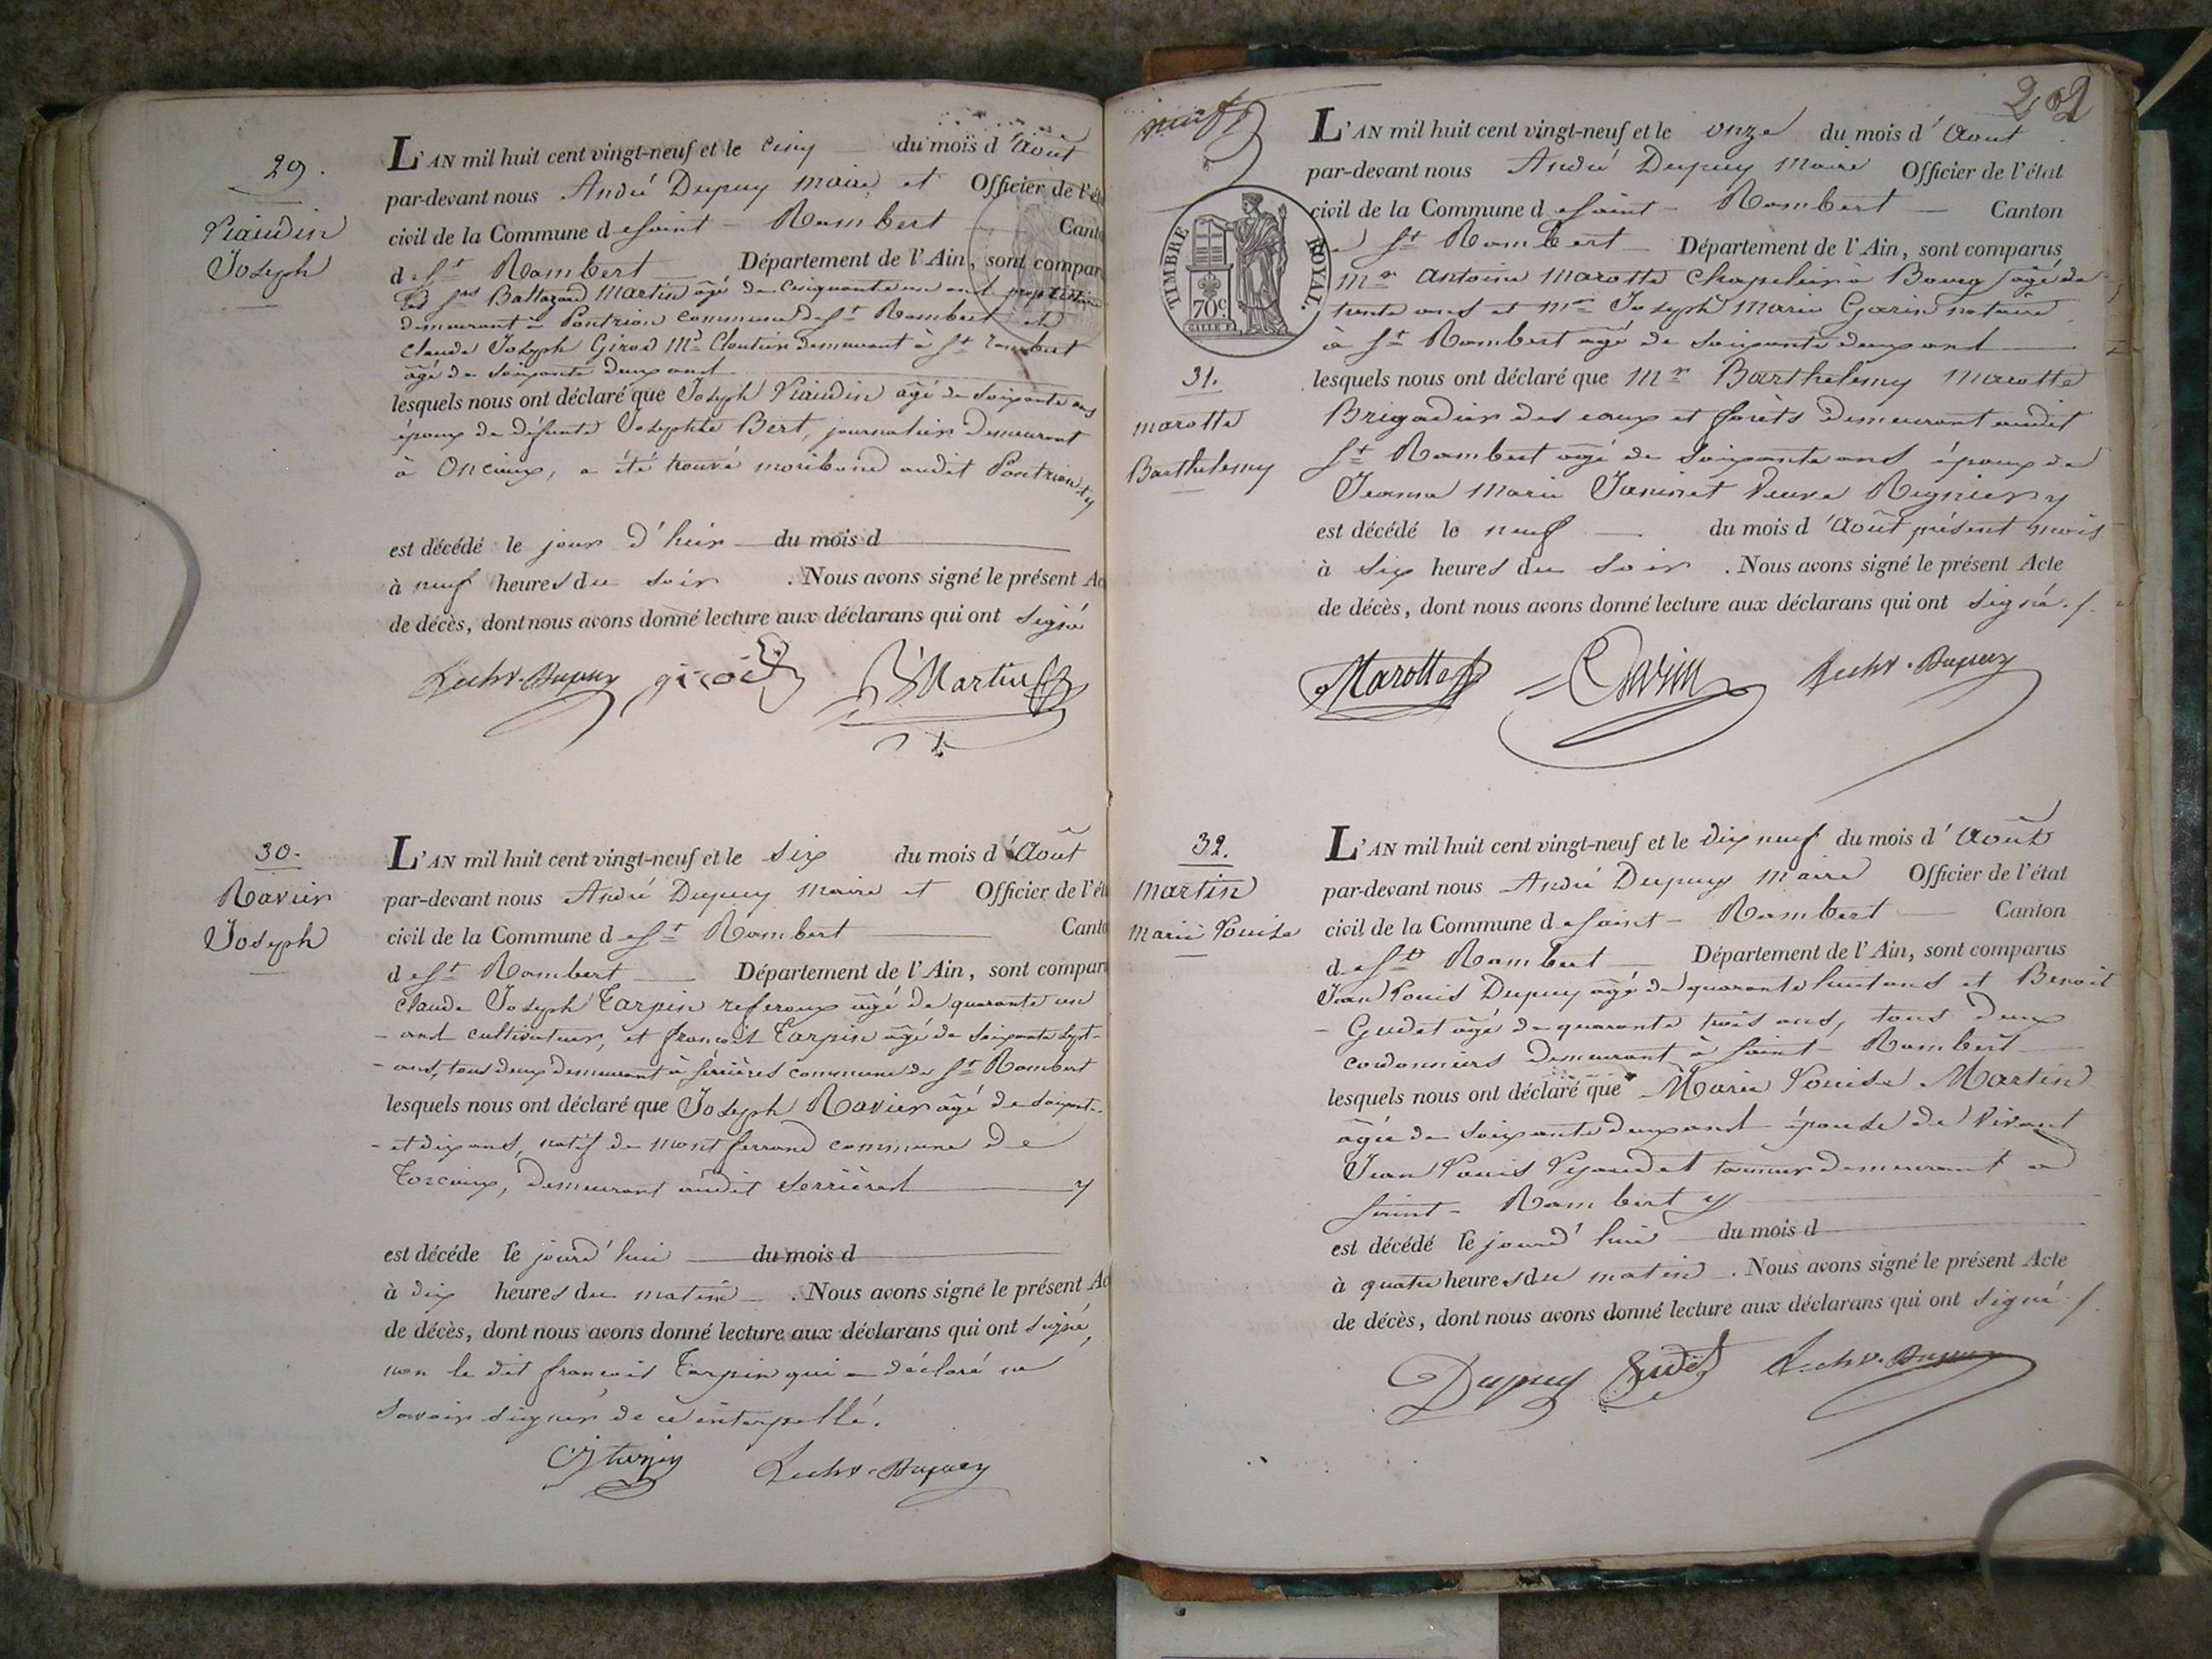 29.
Joseph
L'AN mil huit cent vingt-neuf et le cinq du mois d'Août
par-devant nous André Dupuy maire et Officier de l'ét
civil de la Commune de Saint-Rambert Canto
de St Rambert Département de l'Ain, sont compar
Baltazard Martin âgé de cinquante un ans propriétaire
demeurant à Pontrion commune de St Rambert et
Claude Joseph Girod Md Cloutier demeurant à St Rambert
âgé de soixante deux ans
lesquels nous ont déclaré que Joseph âgé de soixante ans
époux de défunte Josephte Bert, journalier demeurant
à Oncieux, a été trouvé moribond audit Pontrion
est décédé le jour d'hier du mois d
à neuf heures du soir . Nous avons signé le présent Ac
de décès, dont nous avons donné lecture aux déclarans qui ont signé
Dupuy girod Martin
30.
Ravier
Joseph
L'AN mil huit cent vingt-neuf et le six du mois d'Août
par-devant nous André Dupuy maire et Officier de l'éta
civil de la Commune de St Rambert Canto
de St Rambert Département de l'Ain, sont compar
Claude Joseph Tarpin âgé de quarante un
ans cultivateur, et françois Tarpin âgé de soixante sept
ans, tous deux demeurant à serrières commune de St Rambert
lesquels nous ont déclaré que Joseph Ravier âgé de soixante
et dix ans, natif de mont ferrand commune de
Torcieux, demeurant audit serrières
est décéde le jourd'hui du mois d
à dix heures du matin . Nous avons signé le présent Ac
de décès, dont nous avons donné lecture aux déclarans qui ont signé,
non le dit françois Tarpin qui a déclaré ne
savoir signer de ce interpellé.
Dupuy
202
neuf
TIMBRE ROYAL.
70c
31.
marotte
Barthelemy
L'AN mil huit cent vingt-neuf et le onze du mois d'Aout
par-devant nous André Dupuy maire Officier de l'état
civil de la Commune de Saint-Rambert Canton
de St Rambert Département de l'Ain, sont comparus
Mr Antoine Marotte Chapelier à Bourg âgé de
trente ans et Mr Joseph Marie Garin notaire
à St Rambert âgé de soixante deux ans
lesquels nous ont déclaré que Mr Barthelemy Marotte
Brigadier des eaux et forêts demeurant audit
St Rambert âgé de soixante ans époux de
Jeanne Marie Janinet veuve Regnier
est décédé le neuf du mois d'Août présent mois
à six heures du soir . Nous avons signé le présent Acte
de décès, dont nous avons donné lecture aux déclarans qui ont signé.
Marotte Garin Dupuy
32.
Martin
Marie Louise
L'AN mil huit cent vingt-neuf et le dix neuf du mois d'Août
par-devant nous André Dupuy maire Officier de l'état
civil de la Commune de Saint-Rambert Canton
de St Rambert Département de l'Ain, sont comparus
Jean Louis Dupuy âgé de quarante huit ans et Benoit
Gudet âgé de quarante trois ans, tous deux
cordonniers demeurant à Saint-Rambert
lesquels nous ont déclaré que Marie Louise Martin
âgée de soixante deux ans épouse de vivant
Jean Louis tanneur demeurant a
Saint-Rambert
est décédé le jourd'hui du mois d
à quatre heures du matin . Nous avons signé le présent Acte
de décès, dont nous avons donné lecture aux déclarans qui ont signé.
Dupuy Gudet Dupuy